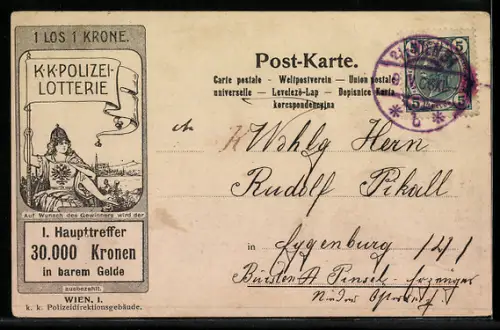 1 LOS 1 KRONE.
K·K·POLIZEI-
LOTTERIE
Auf Wunsch des Gewinners wird der
I. Haupttreffer
30.000 Kronen
in barem Gelde
ausbezahlt.
WIEN, I.
k. k. Polizeidirektionsgebäude.
Post-Karte.
Carte postale - Weltpostverein - Union postale
universelle - Levelező-Lap - Dopisnice Karta
korespondencyjna
5
5
WIEN
Wohlg Herrn
Rudolf Pikall
in Eggenburg
Bürsten Pinsel-